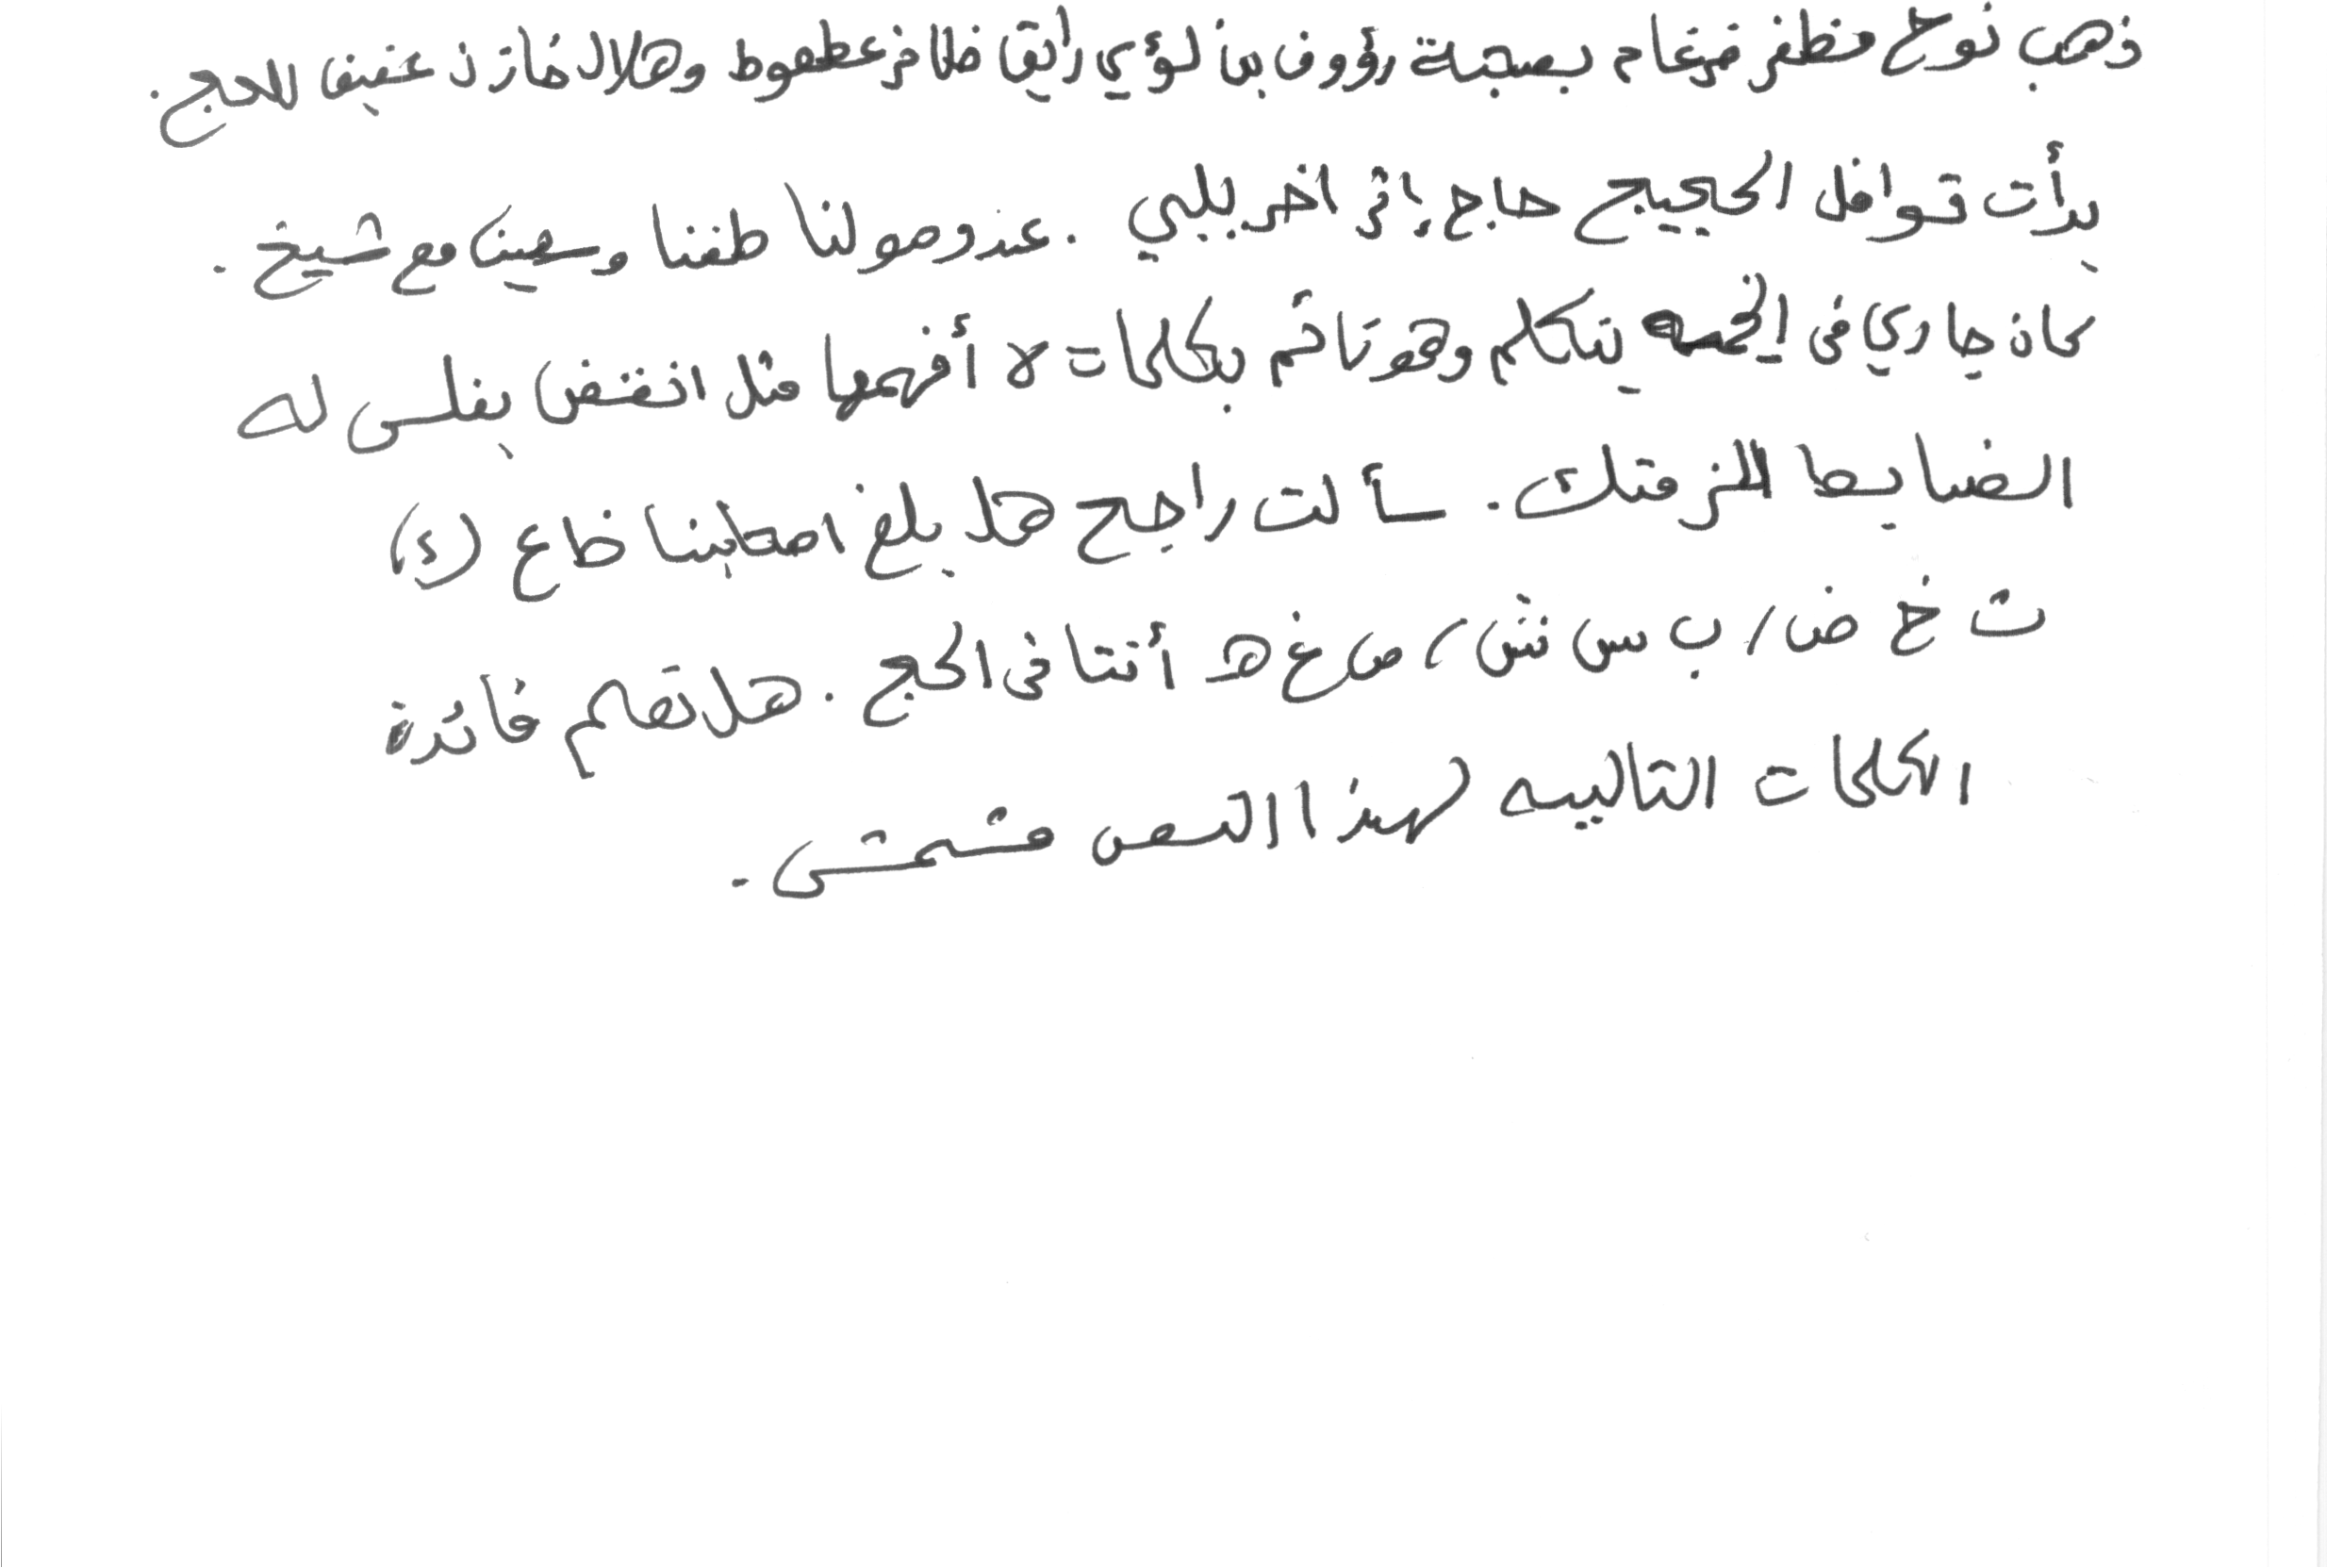 ذهب نوح مظفر ضرغام بصحبة رؤوف بن لؤي رايق ظافر عطعوط وهلال خازن عفيف للحج.
بدأت قوافل الحجيج حاج إثر اخر يلبي. عند وصولنا طفنا وسعينا مع شيخ.
كان جاري في الخيمه يتكلم وهو نائم بكلمات لا أفهمها مثل انقض بفلس له
الضابط المز متك. سألت راجح هل بلغ اصحابنا ضاع (ك)
ث خ ض، ب س ش، ص غ هـ أثنا في الحج. هل تعلم فائدة
الكلمات التاليه لهذا النص مشمش.